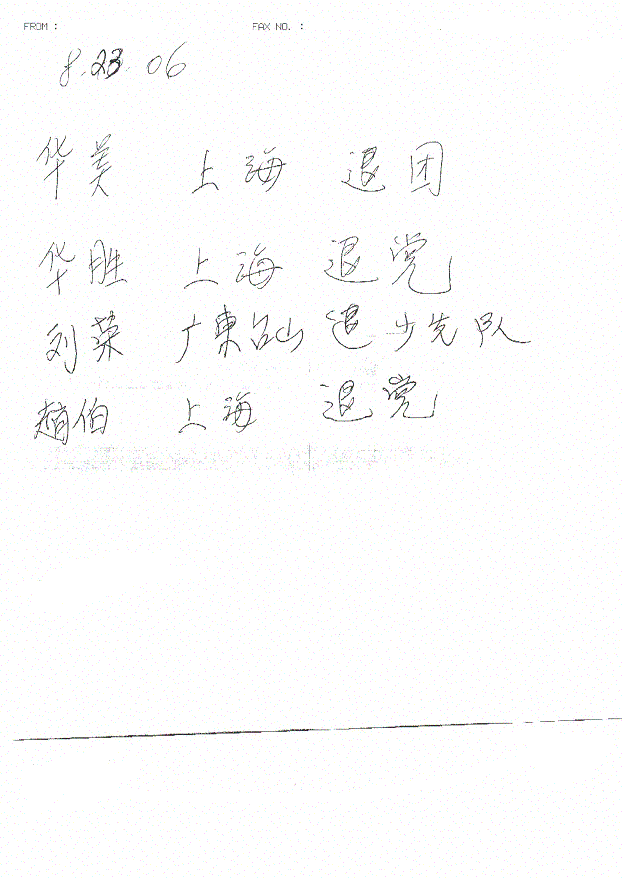 FROM : FAX NO. :
8.23.06
华美 上海 退团
华胜 上海 退党
刘荣 广東台山 退少先队
趙伯 上海 退党